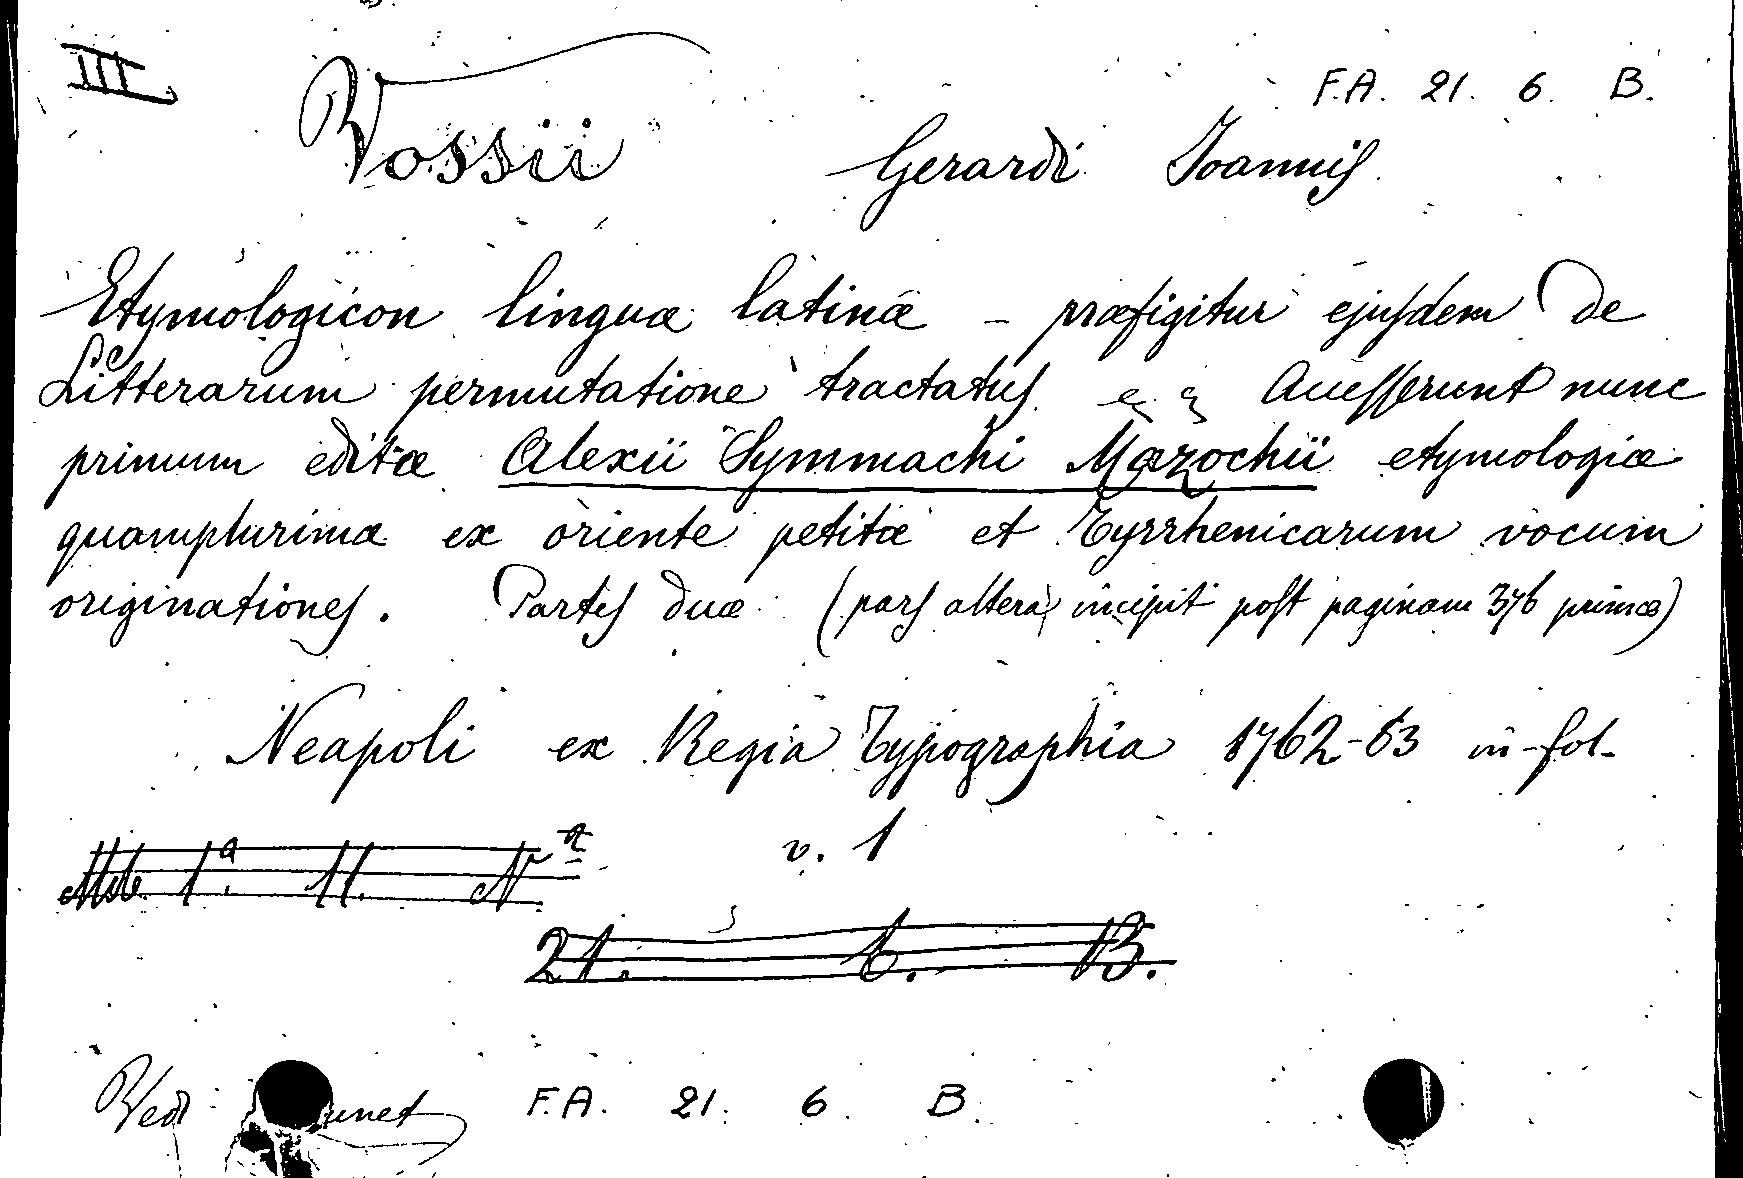 III
F.A. 21. 6. B.
Vossii Gerardi Joannis
Etymologicon linguæ latinæ – præfigitur ejusdem De
Litterarum permutatione tractatus. Accesserunt nunc
primum editæ Alexii Symmachi Mazochii etymologiæ
quamplurimæ ex oriente petitæ et Tyrrhenicarum vocum
originationes. Partes duæ (pars altera incipit post paginam 376 primæ)
Neapoli ex Regia Typographia 1762-63 in-fol.
v. 1
21. 6. B.
Vedi F.A. 21. 6. B